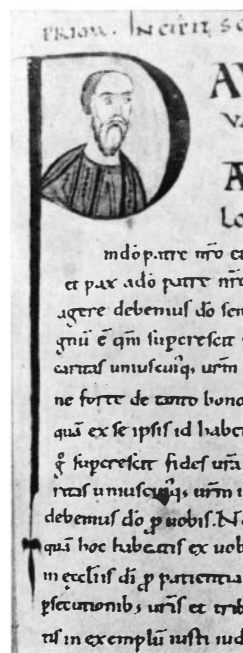 INCIPIT S
P AV
A
LO
in dō patre nr̄o et
et pax a dō patre nr̄o
agere debemus dō sem
gnū ē qm̄ supcrescit
caritas uniuscuiq; urm̄
ne forte de tanto bono
quā ex se ipsis id haber
g̊ supcrescit fides urā
ritas uniuscuiq; urm̄ i
debemus dō ꝓ uobis. N
quā hoc habeatis ex uob
in eccliis di ꝓ patientia
ꝑsecutionib; uris et trib
tis in exemplū iusti iud